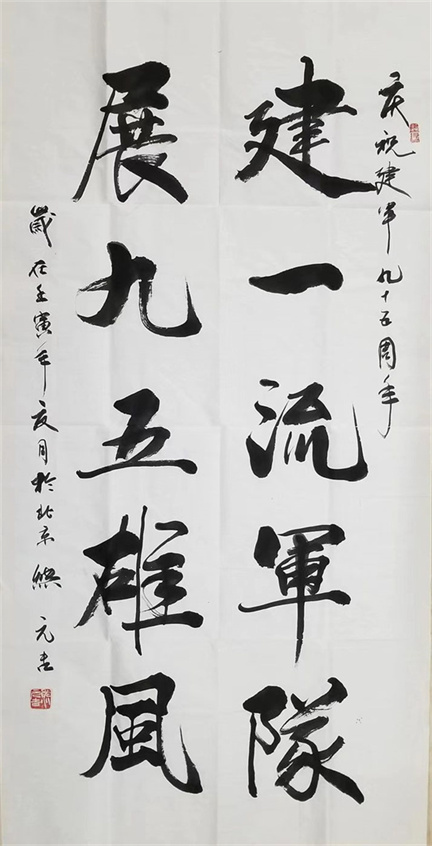 庆祝建军九十五周年
建一流軍隊
展九五雄風
歲在壬寅年夏月於北京 元書